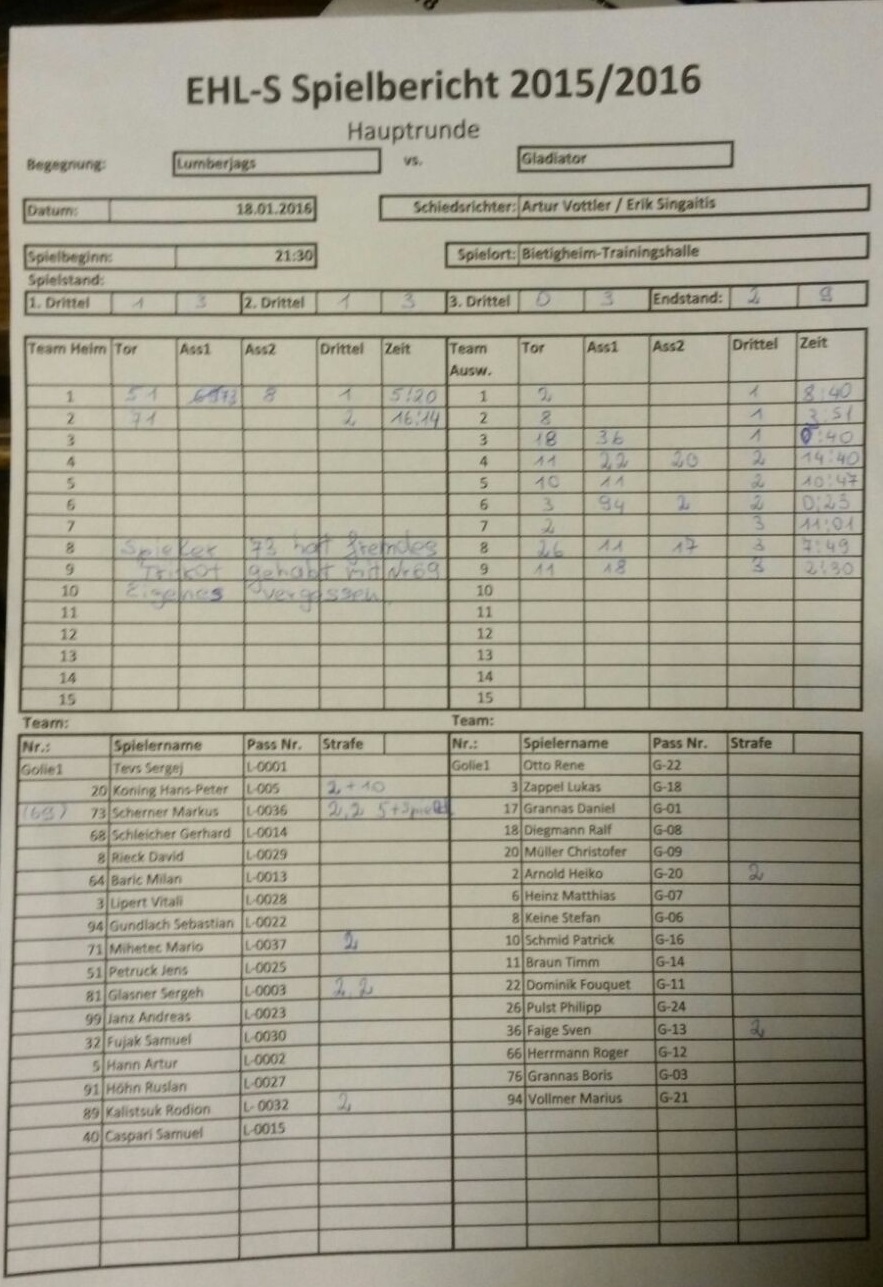 EHL-S Spielbericht 2015/2016
Hauptrunde
Begegnung: Lumberjags vs. Gladiator
Datum: 18.01.2016 Schiedsrichter: Artur Vottler / Erik Singaitis
Spielbeginn: 21:30 Spielort: Bietigheim-Trainingshalle
Spielstand:
1. Drittel 1 3 2. Drittel 1 3 3. Drittel 0 3 Endstand: 2 9
Team Heim Tor Ass1 Ass2 Drittel Zeit Team Ausw. Tor Ass1 Ass2 Drittel Zeit
1 51 73 8 1 5:20 1 2 1 8:40
2 71 2 16:14 2 8 1 3:51
3 3 18 36 1 0:40
4 4 11 22 20 2 14:40
5 5 10 11 2 10:47
6 6 3 94 2 2 0:23
7 7 2 3 11:01
8 Spieler 73 hatt fremdes 8 26 11 17 3 7:49
9 Trikot gehabt mit Nr 69 9 11 18 3 2:30
10 Eigenes vergessen 10
11 11
12 12
13 13
14 14
15 15
Team: Team:
Nr.: Spielername Pass Nr. Strafe Nr.: Spielername Pass Nr. Strafe
Golie1 Tevs Sergej L-0001 Golie1 Otto Rene G-22
20 Koning Hans-Peter L-005 2+10 3 Zappel Lukas G-18
(69) 73 Scherner Markus L-0036 2,2 5+Spield 17 Grannas Daniel G-01
68 Schleicher Gerhard L-0014 18 Diegmann Ralf G-08
8 Rieck David L-0029 20 Müller Christofer G-09
64 Baric Milan L-0013 2 Arnold Heiko G-20 2
3 Lipert Vitali L-0028 6 Heinz Matthias G-07
94 Gundlach Sebastian L-0022 8 Keine Stefan G-06
71 Mihetec Mario L-0037 2 10 Schmid Patrick G-16
51 Petruck Jens L-0025 11 Braun Timm G-14
81 Glasner Sergeh L-0003 2,2 22 Dominik Fouquet G-11
99 Janz Andreas L-0023 26 Pulst Philipp G-24
32 Fujak Samuel L-0030 36 Faige Sven G-13 2
5 Hann Artur L-0002 66 Herrmann Roger G-12
91 Höhn Ruslan L-0027 76 Grannas Boris G-03
89 Kalistsuk Rodion L- 0032 2 94 Vollmer Marius G-21
40 Caspari Samuel L-0015